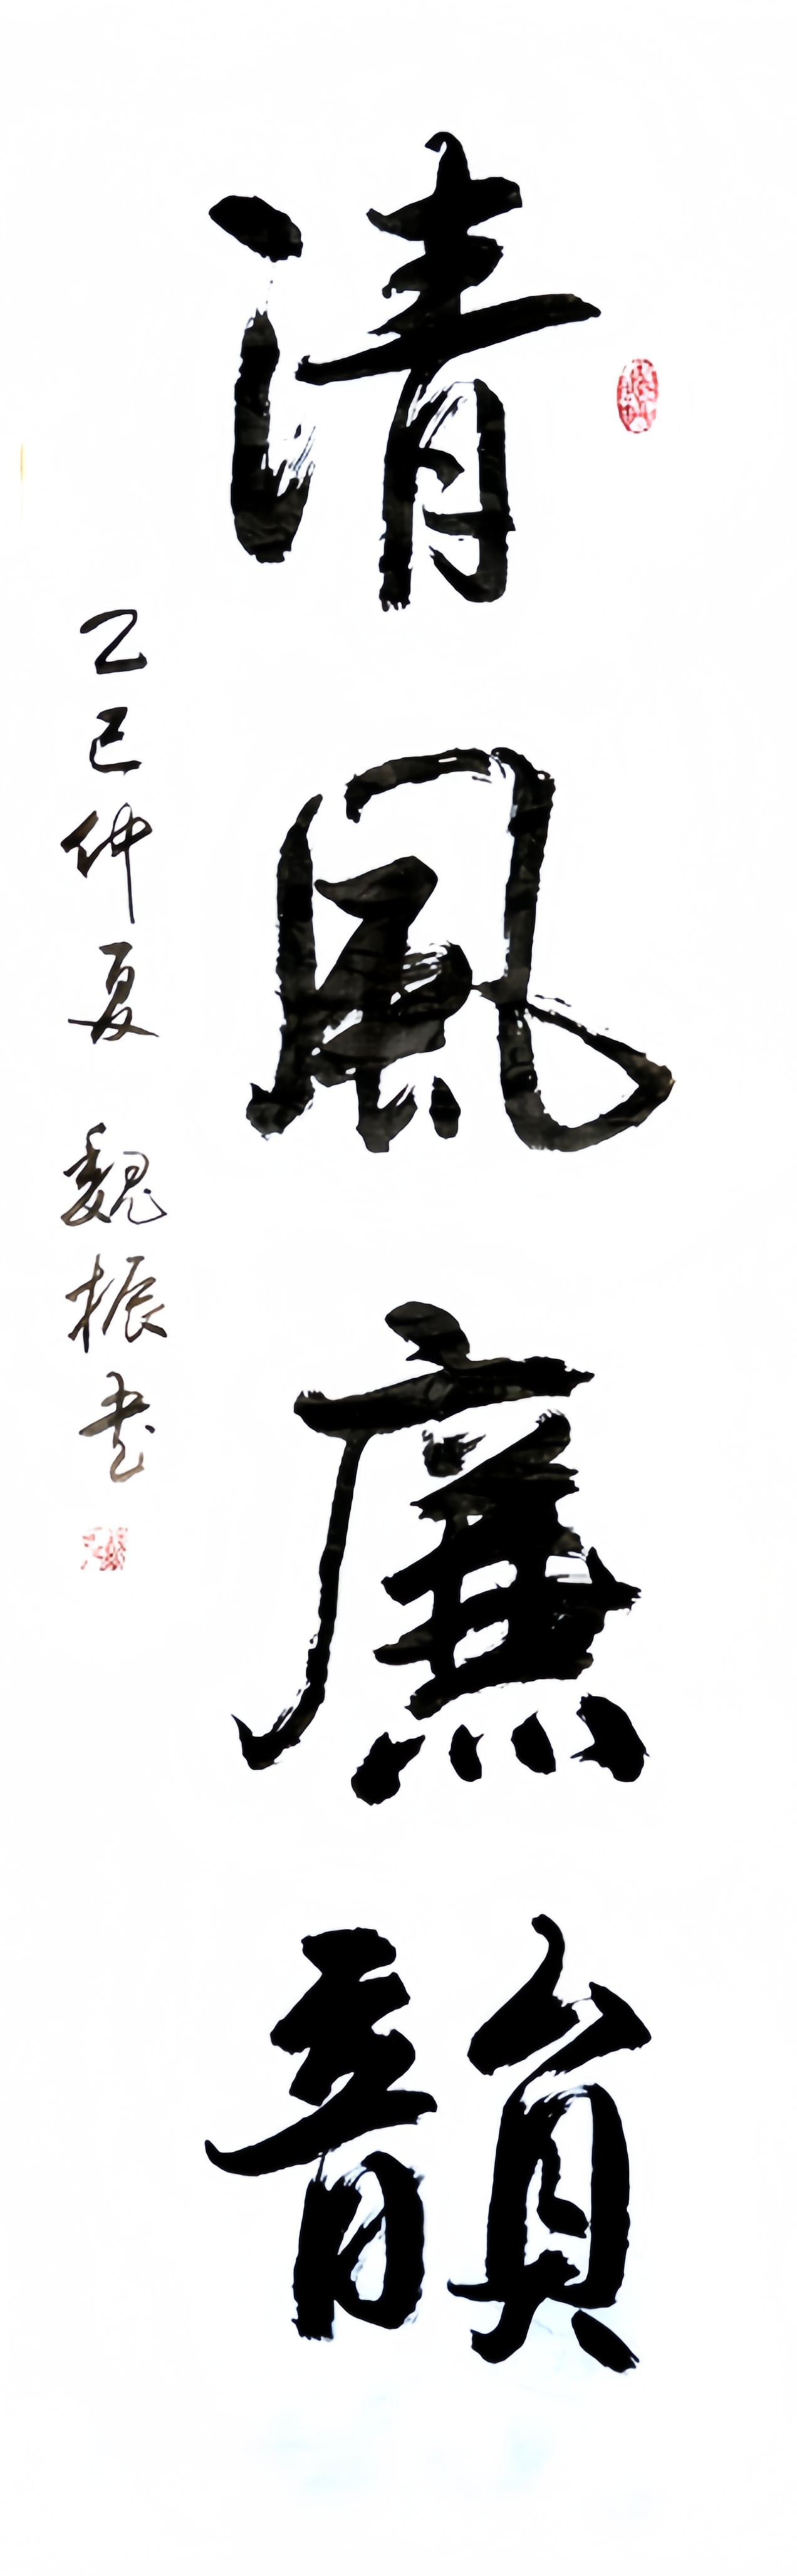 清風廉韻
乙巳仲夏 魏振书